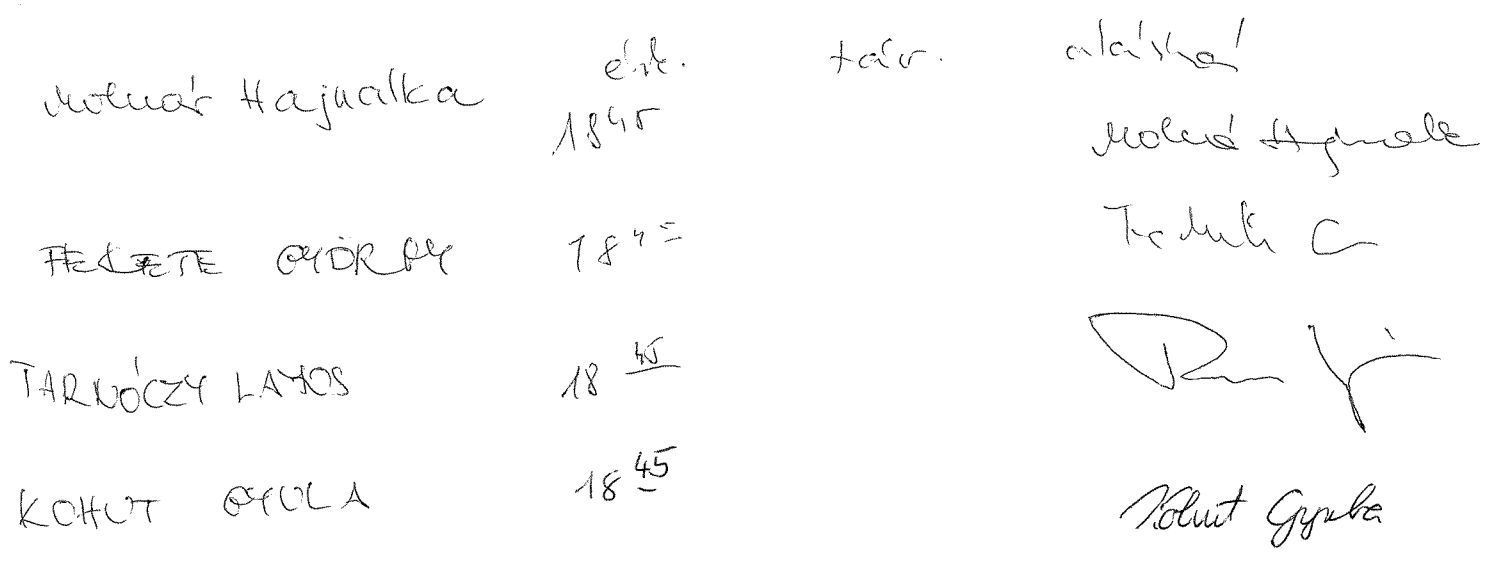 érk. táv. aláírás
Molnár Hajnalka 18 45 Molnár Hajnalka
FEKETE GYÖRGY 18 45
TARNÓCZY LAJOS 18 45
KOHUT GYULA 18 45 Kohut Gyula